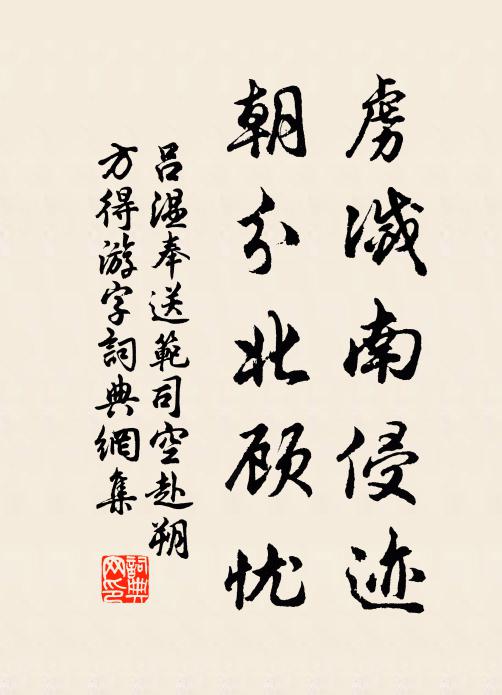 虏灭南侵迹
朝分北顾忧
吕温奉送範司空赴朔
方得游字詞典網集
詞典网印